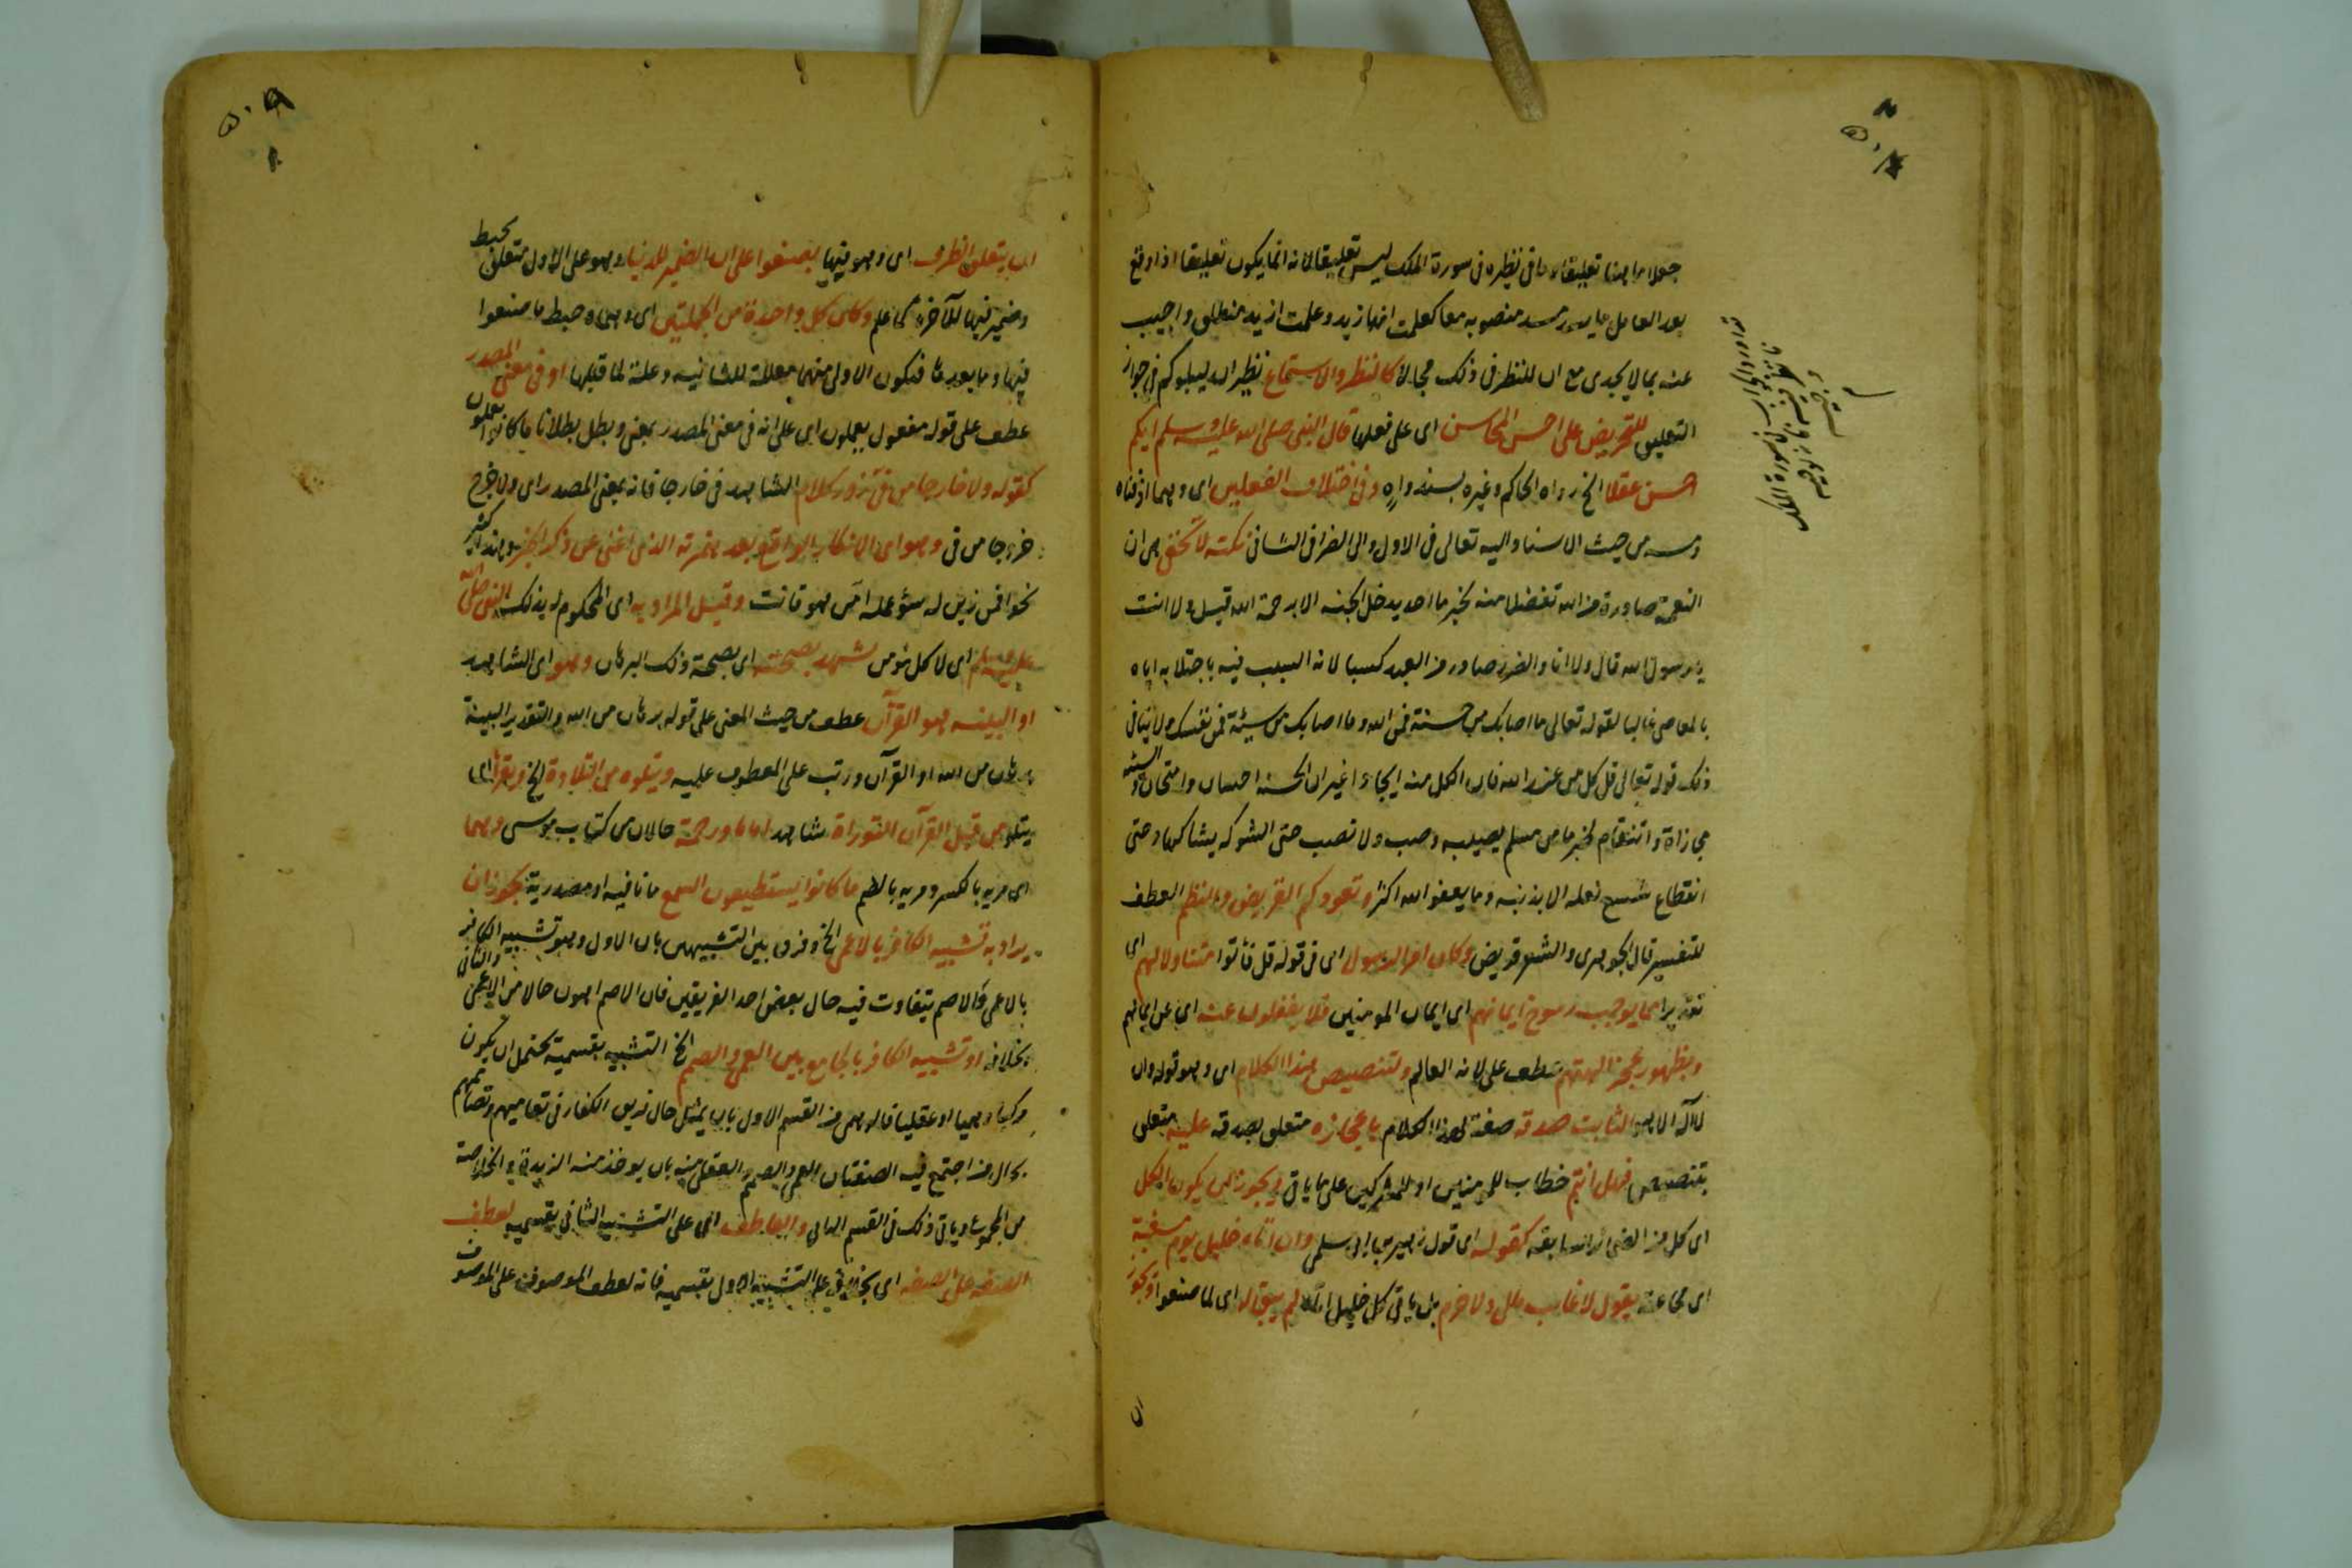 جعلا ما هنا تعليقا وما في نظيره في سورة الملك ليس تعليقا لانه انما يكون تعليقا اذا وقع
بعد العامل ما يسد مسد منصوبه معا كعلمت ايهما زيد وعلمت ازيد منطلق واجيب
عنه بما لا يجدى مع ان للنظر في ذلك مجالا كالنظر والاستماع نظير ان ليبلوكم في جواز
التعليق للتحريض على احسن المحاسن اى على فعلها قال النبي صلى الله عليه وسلم ايكم
احسن عقلا الخ رواه الحاكم وغيره بسند واه وفي اختلاف الفعلين اى وهما اذقناه
ومسه من حيث الاسناد اليه تعالى في الاول والى الضر في الثاني نكتة لا تخفى هى ان
النعمة صادرة من الله تفضلا منه لخبر ما احد يدخل الجنة الا برحمة الله قيل ولا انت
يا رسول الله قال ولا انا والضرر صادر من العبد كسبا لانه السبب فيه باجتلابه اياه
بالمعاصى غالبا لقوله تعالى ما اصابك من حسنة فمن الله وما اصابك من سيئة فمن نفسك ولا ينافى
ذلك قوله تعالى قل كل من عند الله فان الكل منه ايجادا غير ان الحسنة احسان وامتحان والسيئة
مجازاة وانتقام لخبر ما من مسلم يصيبه وصب ولا نصب حتى الشوكة يشاكها وحتى
انقطاع شسع نعله الا بذنبه وما يعفو الله اكثر وتعودكم القريض والنظم العطف
للتفسير قال الجوهرى والشعر قريض وكان امر الرسول اى في قوله قل فأتوا متناولا لهم اى
تقديرا مما يوجب رسوخ ايمانهم اى ايمان المومنين فلا يغفلون عنه اى عن ايمانهم
وبظهور عجز الهتهم عطف على لانه العالم ولتنصيص هذا الكلام اى وهو قوله وان
لا اله الا هو الثابت صدقه صفة لهذا الكلام باعجازه متعلق بصدقه عليه متعلق
بتنصيص فهل انتم خطاب للمومنين او للمشركين على ما ياتى ويجوز ان يكون الكل
اى كل من الضمائر السابقة كقوله اى قول زهير بن ابى سلمى وان اتاه خليل يوم مسغبة
اى مجاعة يقول لا غائب مالى ولا حرم لم يبق له اى لما صنعوا ويجوز
ان يتعلق الظرف اى وهو فيها بصنعوا على ان الضمير للدنيا وهو على الاول متعلق بحبط
وضمير فيها للآخرة كما علم وكان كل واحدة من الجملتين اى وهما حبط ما صنعوا
فيها وما بعدها فتكون الاولى منهما معللة للثانية وعلة لما قبلها او في معنى المصدر
عطف على قوله مفعول يعملون اى على انه في معنى المصدر بمعنى وبطل بطلانا ما كانوا يعملون
كقوله ولا خارجا من في زور كلام الشاهد في خارجا فانه بمعنى المصدر اى ولا خرج
خروجا من في وهو اى الانكار الواقع بعد همزته الذى اغنى عن ذكر الخبر وهذا كثير
نحو افمن زين له سوء عمله امن هو قانت وقيل المراد به اى المحكوم له بذلك النبي صلى الله
عليه وسلم اى لا كل مؤمن شهد بصحته اى بصحة ذلك البرهان وهو اى الشاهد
او البينة هو القرآن عطف من حيث المعنى على قوله برهان من الله والتقدير البينة
برهان من الله او القرآن ورتب على المعطوف عليه ويتلوه من التلاوة الخ ويقرأ اى
يتلو من قبل القرآن التوراة شاهد اماما ورحمة حالان من كتاب موسى وهما
اى مرية بالكسر ومرية بالضم ما كانوا يستطيعون السمع ما نافية او مصدرية يجوز ان
يراد به تشبيه الكافر بالاعمى الخ وفرق بين التشبيهين بان الاول وهو تشبيه الكافر
بالاعمى والاصم يتفاوت فيه حال بعض احد الفريقين فان الاصم اهون حالا من الاعمى والثانى
بخلافه او تشبيه الكافر بالجامع بين العمى والصمم الخ التشبيه بقسميه يحتمل ان يكون
مركبا وهميا او عقليا فالوهمى من القسم الاول بان يمثل حال فريق الكفار في تعاميهم وتصامهم
بحال من اجتمع فيه الصفتان العمى والصمم والعقلى منه بان يوخذ منه الزبدة والخلاصة
من المجموع وياتى ذلك في القسم الثانى والعاطف اى على التشبيه الثانى بقسميه لعطف
الصفة على الصفة اى بخلافه على التشبيه الاول بقسميه فانه لعطف الموصوف على الموصوف